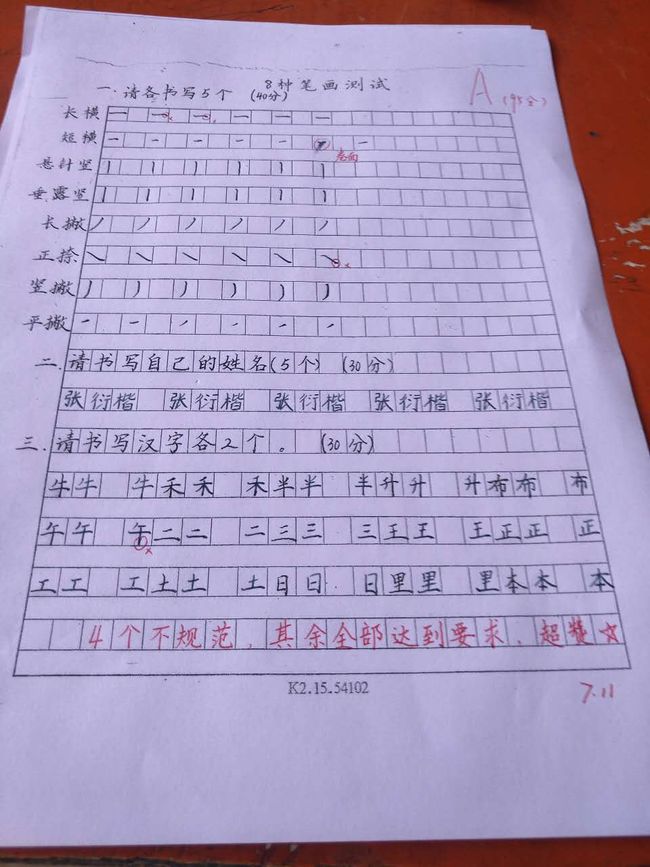 8种笔画测试
A (95分)
一.请各书写5个 (40分)
长横 一 一 一 一 一 一
短横 一 一 一 一 一 一 一
悬针竖 丨 丨 丨 丨 丨 丨
垂露竖 丨 丨 丨 丨 丨 丨
长撇 丿 丿 丿 丿 丿 丿
正捺 ㇏ ㇏ ㇏ ㇏ ㇏ ㇏
竖撇 丿 丿 丿 丿 丿 丿
平撇 ㇒ ㇒ ㇒ ㇒ ㇒ ㇒
二.请书写自己的姓名(5个) (30分)
张衍楷 张衍楷 张衍楷 张衍楷 张衍楷
三.请书写汉字各2个。 (30分)
牛牛 牛禾禾 禾半半 半升升 升布布 布
午午 午二二 二三三 三王王 王正正 正
工工 工土土 土日日 日里里 里本本 本
4个不规范,其余全部达到要求,超赞☆
K2.15.54102
7.11